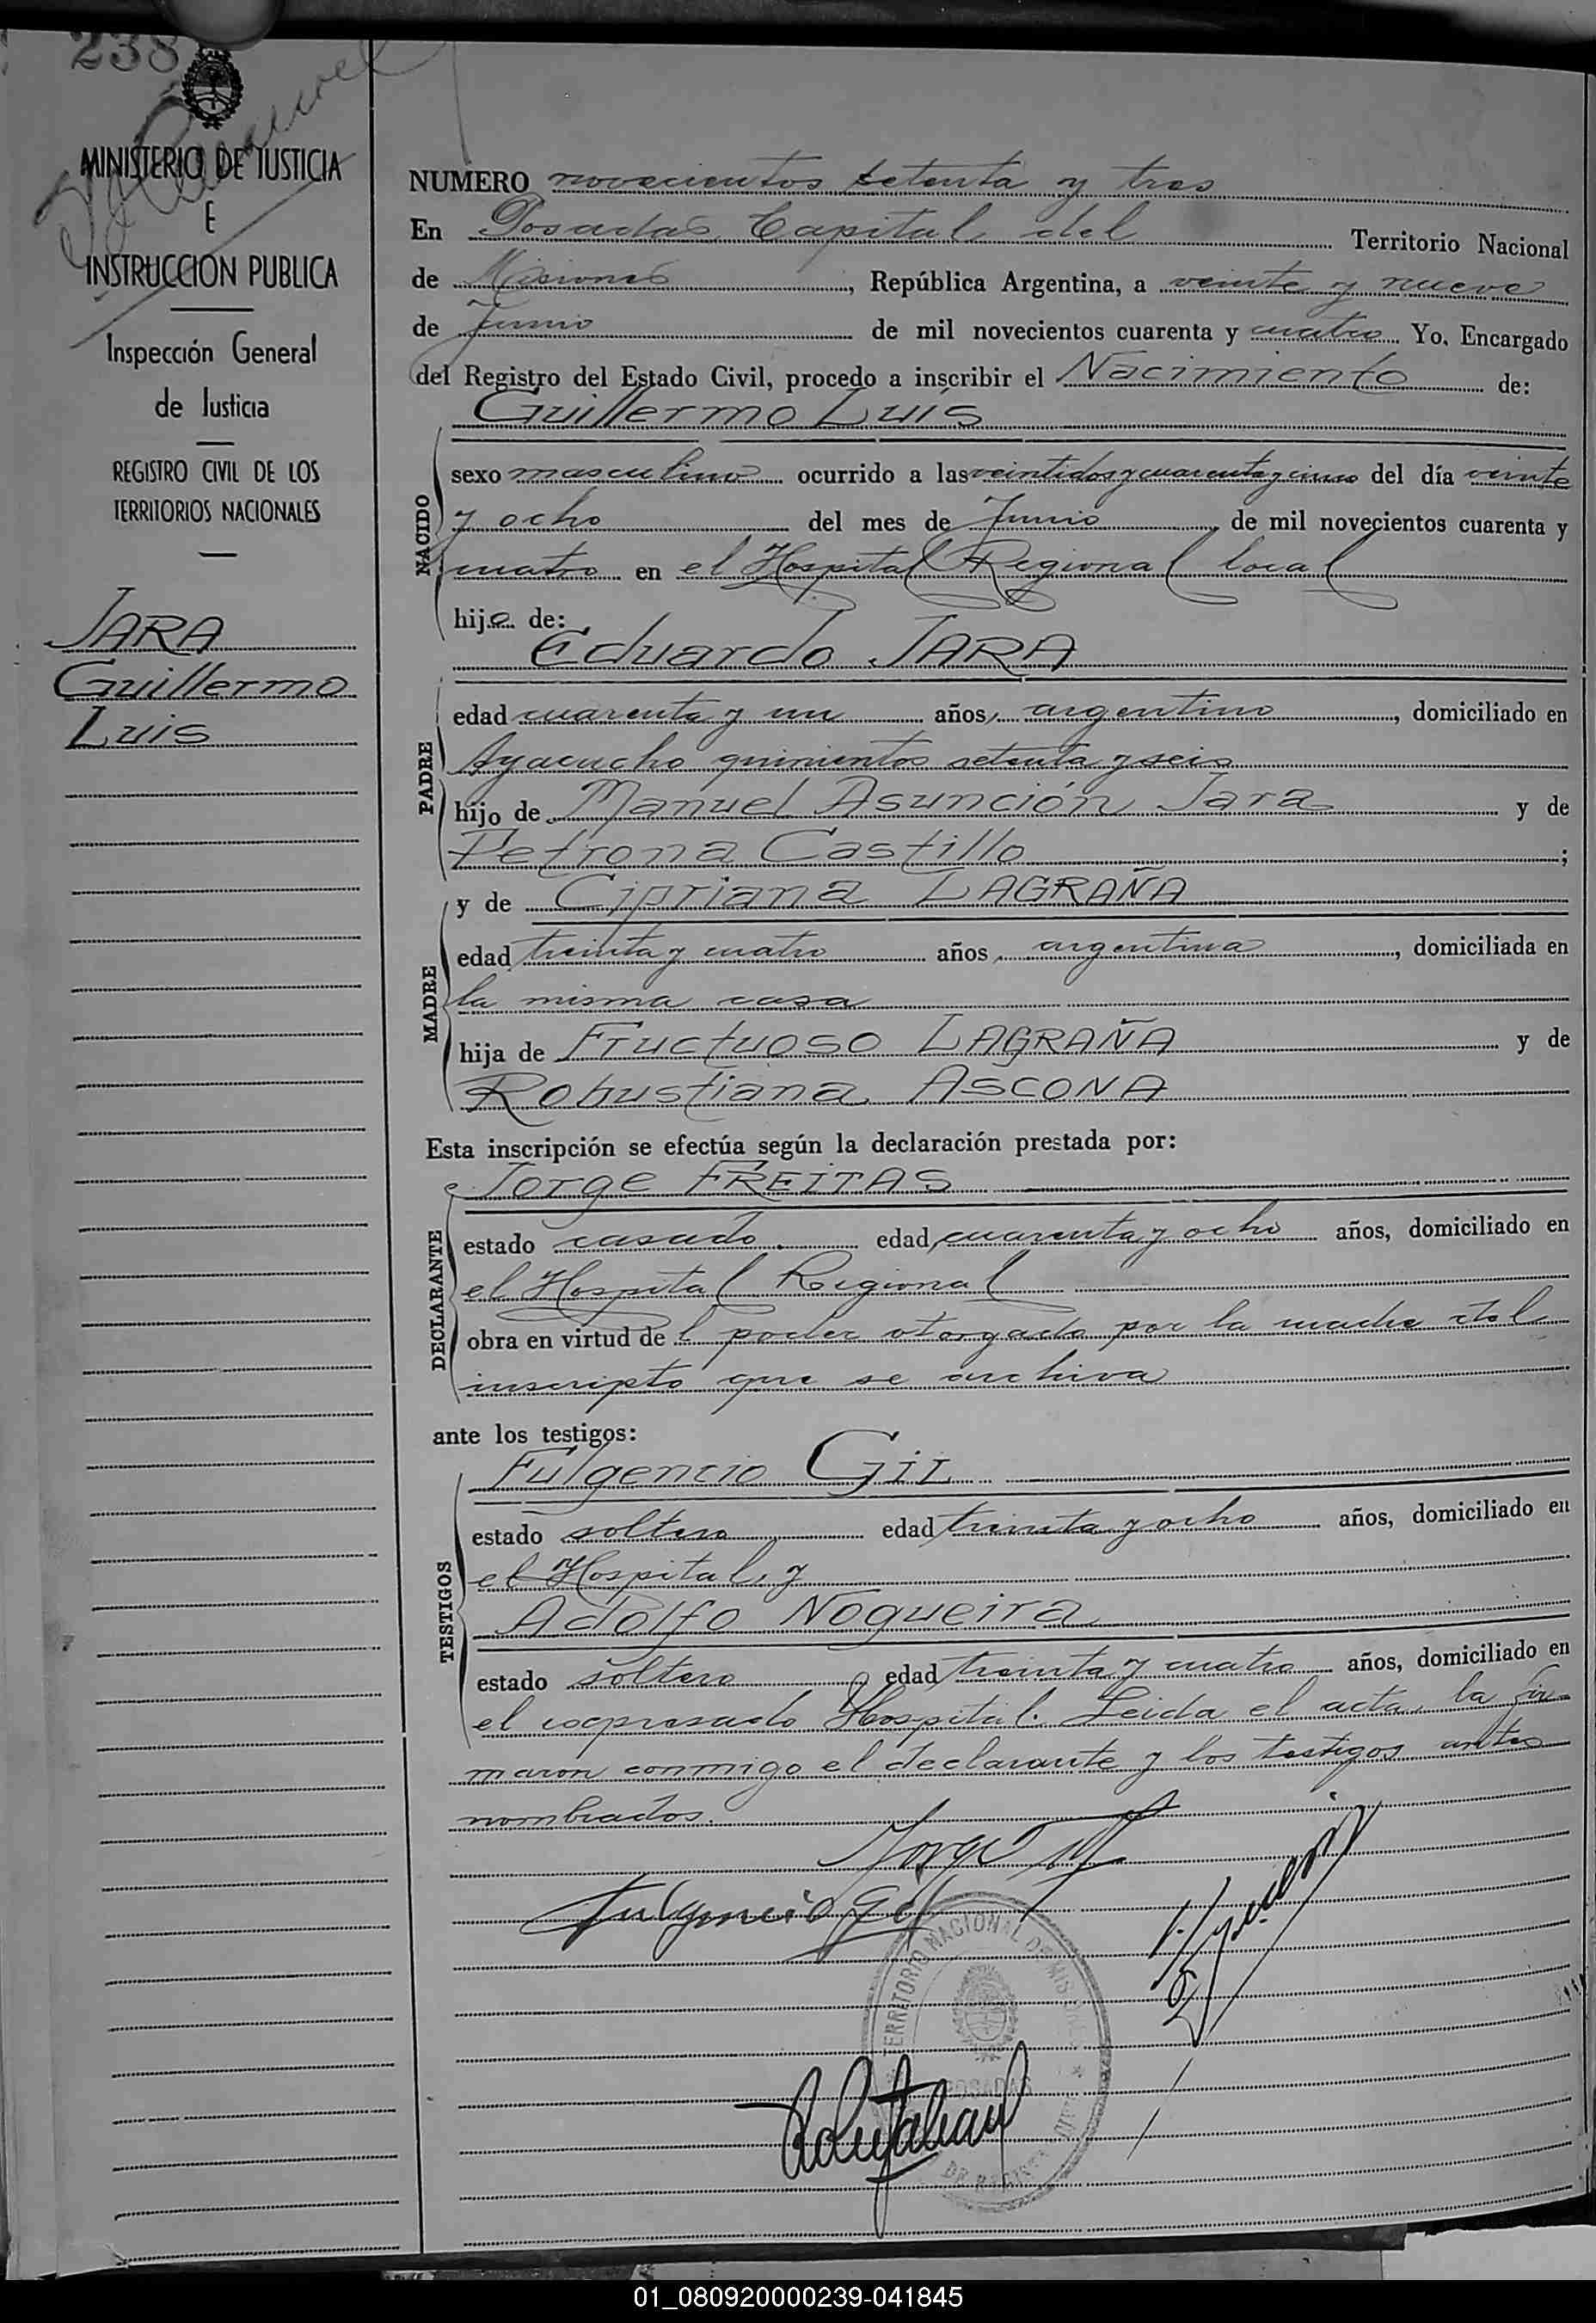 238
MINISTERIO DE JUSTICIA
E
INSTRUCCION PUBLICA
Inspección General
de Justicia
REGISTRO CIVIL DE LOS
TERRITORIOS NACIONALES
JARA
Guillermo
Luis
NUMERO novecientos setenta y tres
En Posadas Capital del Territorio Nacional
de Misiones, República Argentina, a veinte y nueve
de Junio de mil novecientos cuarenta y cuatro Yo, Encargado
del Registro del Estado Civil, procedo a inscribir el Nacimiento de:
Guillermo Luis
NACIDO
sexo masculino ocurrido a las veintidos y cuarenta y cinco del día veinte
y ocho del mes de Junio, de mil novecientos cuarenta y
cuatro en el Hospital Regional local
hijo de:
Eduardo JARA
PADRE
edad cuarenta y un años, argentino, domiciliado en
Ayacucho quinientos setenta y seis
hijo de Manuel Asunción Jara y de
Petrona Castillo;
y de Cipriana LAGRAÑA
MADRE
edad treinta y cuatro años, argentina, domiciliada en
la misma casa
hija de Fructuoso LAGRAÑA y de
Robustiana ASCONA
Esta inscripción se efectúa según la declaración prestada por:
Jorge FREITAS
DECLARANTE
estado casado edad cuarenta y ocho años, domiciliado en
el Hospital Regional
obra en virtud del poder otorgado por la madre del
inscripto que se archiva
ante los testigos:
Fulgencio GIL
TESTIGOS
estado soltero edad treinta y ocho años, domiciliado en
el Hospital, y
Adolfo Nogueira
estado soltero edad treinta y cuatro años, domiciliado en
el expresado Hospital. Leida el acta, la fir-
maron conmigo el declarante y los testigos antes
nombrados.
Jorge
Fulgencio Gil
TERRITORIO NACIONAL DE MISIONES
POSADAS
01_080920000239-041845